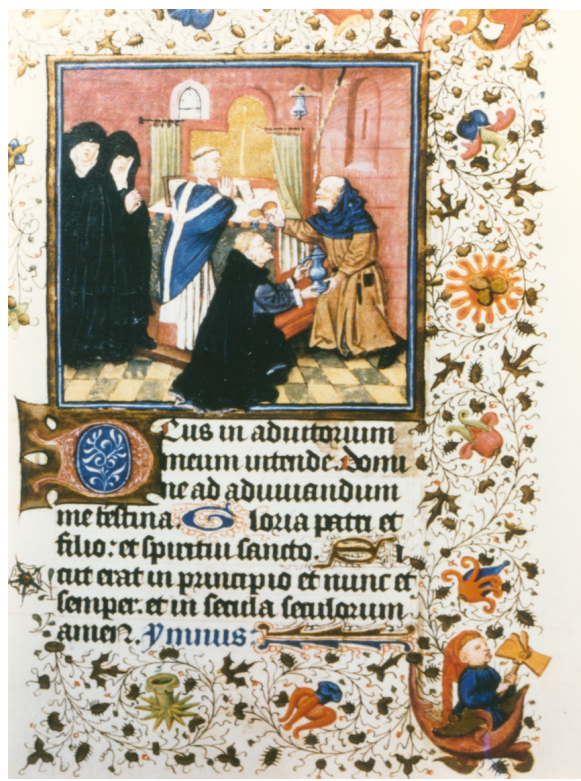 Deus in adiutorium
meum intende. Domi
ne ad adiuuandum
me festina. Gloria patri et
filio: et spiritui sancto. Si
cut erat in principio et nunc et
semper. et in secula seculorum
amen. Ymnus: